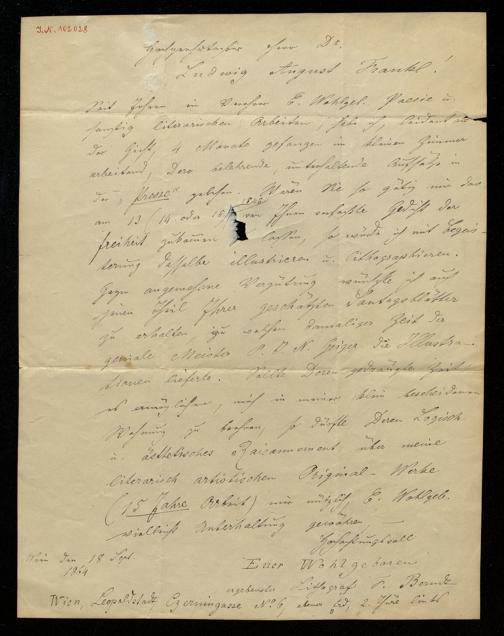 I.N. 102028
Hochgeehrtester Herr Dr.
Ludwig August Frankl!
Seit Jahren ein Verehrer E. Wohlgeb. Poesie u.
literarischen Arbeiten, habe ich, leidend an
der Gicht, 4 Monate gefangen im kleinen Zimmer
arbeitend, Dero belehrende, unterhaltende Aufsätze in
der „Presse" gelesen. Wären Sie so gütig mir das
am 13 (14. oder 15 1848 von Ihnen verfasste Gedicht der
Freiheit zukommen zu lassen, so würde ich mit Begeis-
terung dasselbe illustrieren u. lithographieren.
Gegen angemessene Vergütung wünschte ich auch
jenen Theil Ihrer geschätzten Sontagsblätter
zu erhalten zu welchen damaliger Zeit der
geniale Meister P. J. N. Geiger die Illustra-
tionen lieferte. Sollte Deren gedrängte Zeit
es ermöglichen, mich in meiner klein bescheidenen
Wohnung zu beehren, so dürfte Deren Logisch
u. ästhetisches Raisonnement über meine
literarisch artistischen Original-Werke
(15 Jahre Arbeit) mir nützlich, E. Wohlgeb.
vielleicht Unterhaltung gewähren,
Hochachtungsvoll
Wien den 18 Sept.
1864
Euer Wohlgeboren
ergebenster Lithograf F. Berndt
Wien, Leopoldstadt, Czerningasse No 6, 2. Thüre links